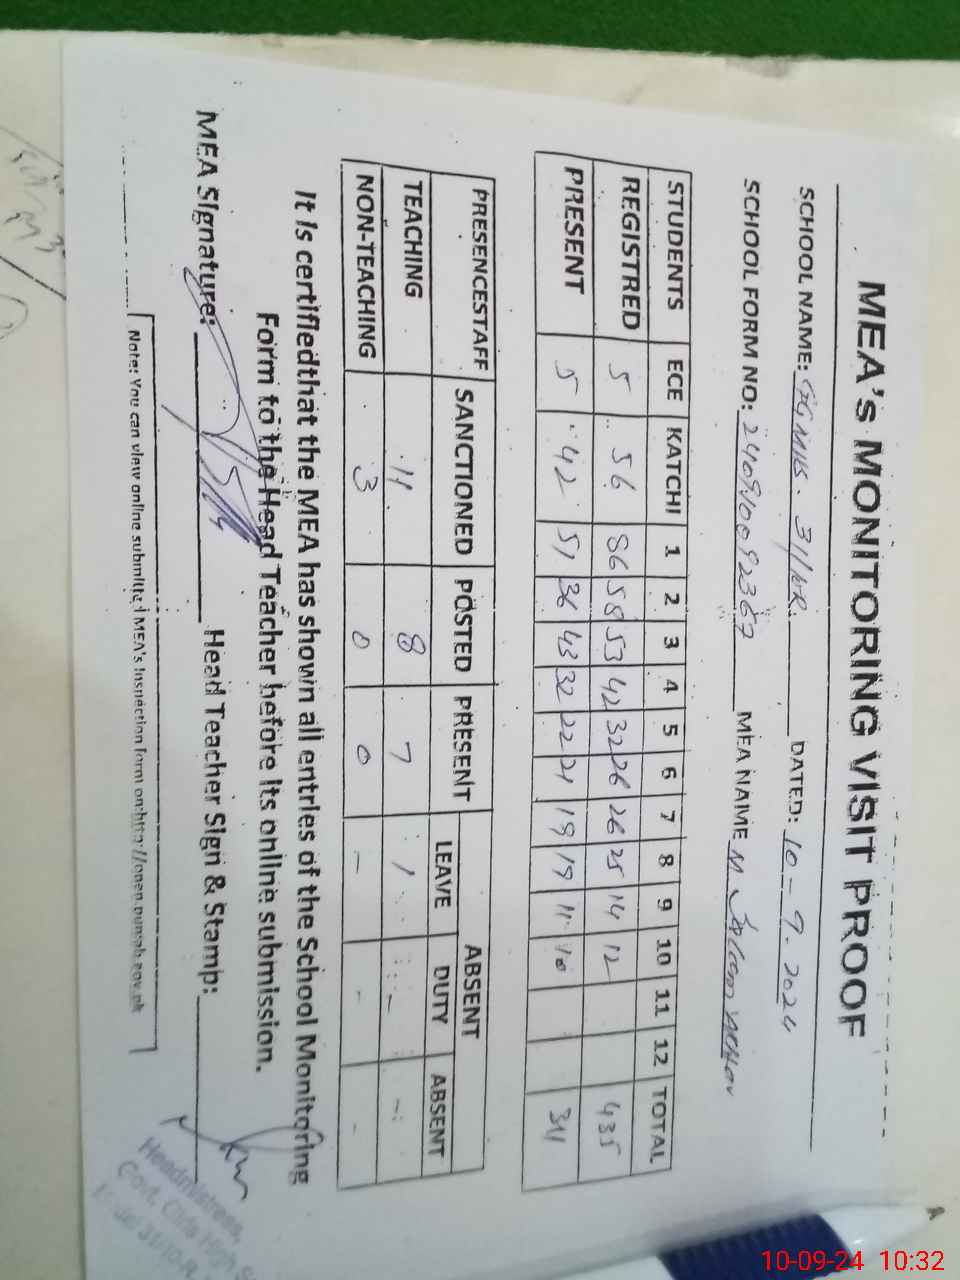 MEA's MONITORING VISIT PROOF
SCHOOL NAME: DATED: 10-9-2024
SCHOOL FORM NO: MEA NAME M
STUDENTS ECE KATCHI 1 2 3 4 5 6 7 8 9 10 11 12 TOTAL
REGISTRED 5 56 86 58 53 42 32 26 26 25 14 12 435
PRESENT 5 42 51 36 43 32 22 21 19 19 11 10 311
PRESENCESTAFF SANCTIONED POSTED PRESENT ABSENT
LEAVE DUTY ABSENT
TEACHING 11 8 7 1 - -
NON-TEACHING 3 0 0 - - -
It is certifiedthat the MEA has shown all entries of the School Monitoring
Form to the Head Teacher before its online submission.
MEA Signature: Head Teacher Sign & Stamp:
Headmistress,
Govt. Girls High
Note: You can view online submitted MEA's Inspection form on:http://open.punjab.gov.pk
10-09-24 10:32